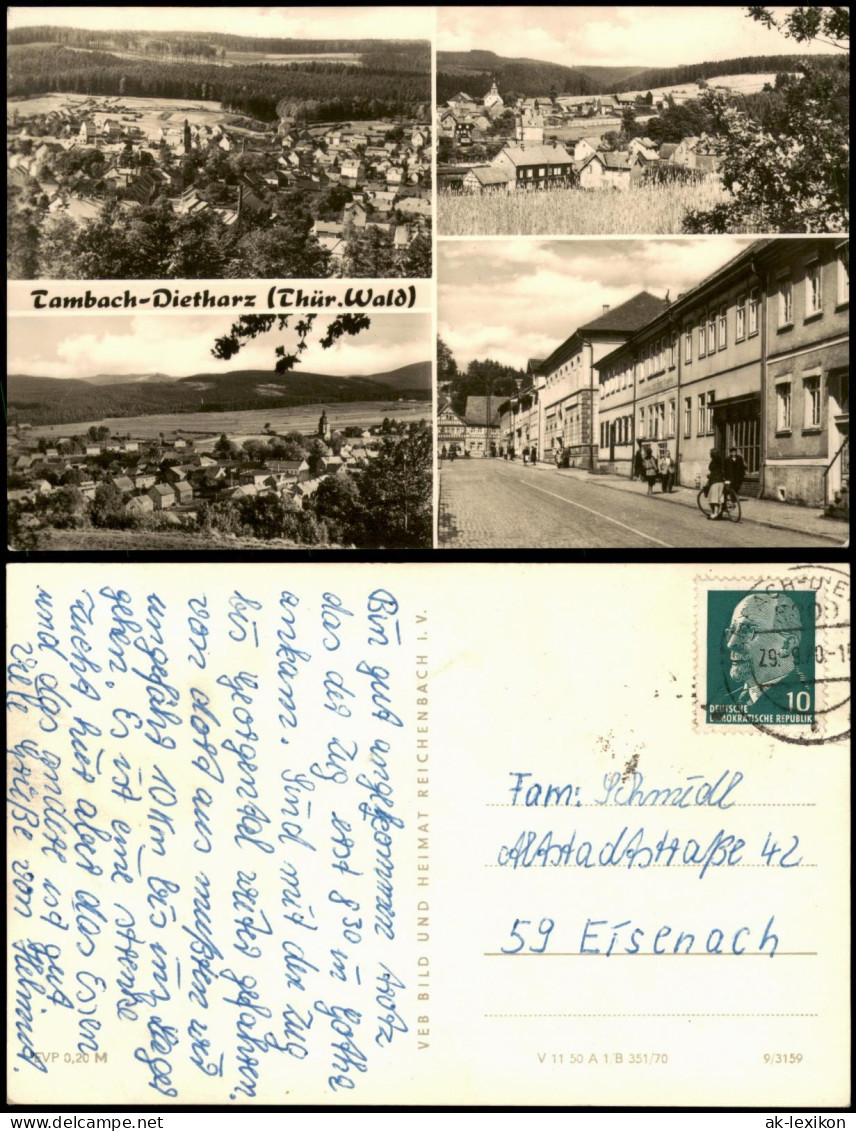 Tambach-Dietharz (Thür. Wald)
Bin gut angekommen trotz
das der Zug erst 8³⁰ in Gotha
ankam. Sind mit den Zug
bis Georgental weiter gefahren.
von dort aus mußten wir
ungefähr 10 km bis ins Lager
gehen. Es ist eine strenge
Zucht hier aber das Essen
und das andere ist gut
Viele Grüße von Helmut.
VEB BILD UND HEIMAT REICHENBACH I. V.
EVP 0,20 M
DEUTSCHE
DEMOKRATISCHE REPUBLIK
10
Fam: Schmidl
Altstadtstraße 42
59 Eisenach
V 11 50 A 1/B 351/70
9/3159
ak-lexikon
ak-lexikon.com